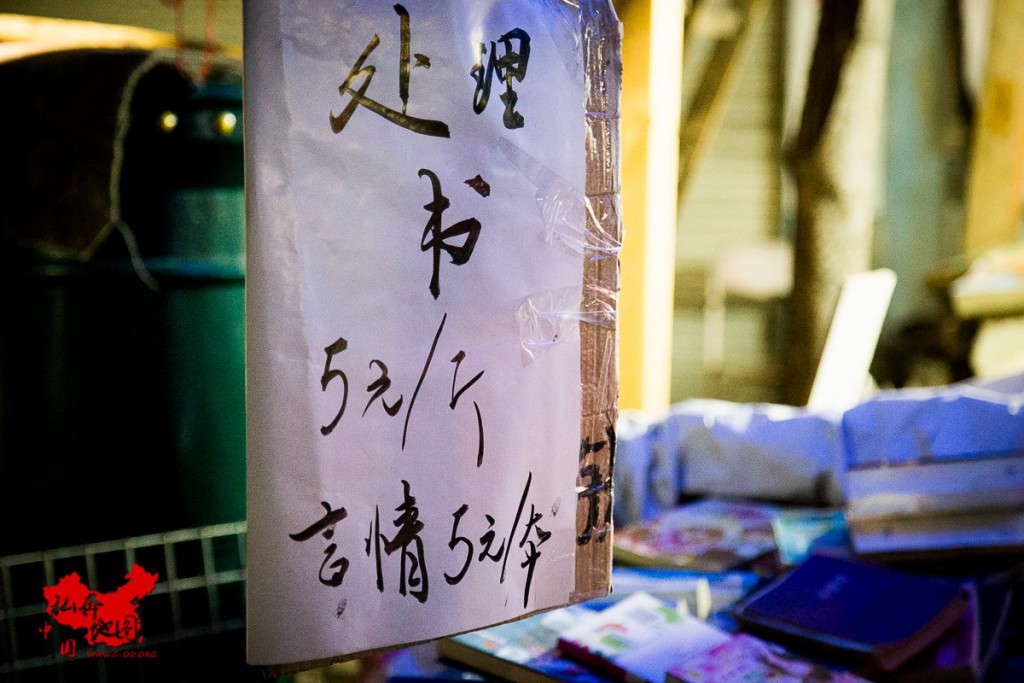 处理
书
5元/斤
言情5元/本
私奔
中国地图
WWW.C-DD.ORG